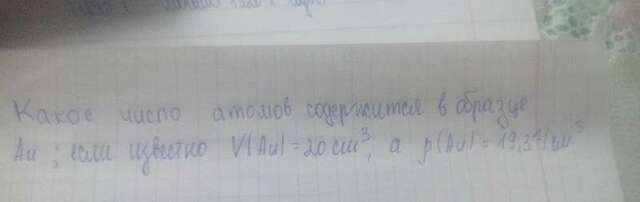 Какое число атомов содержится в образце
Au ; если известно V(Au)=20 cm³, а ρ(Au)=19,3 г/cm³